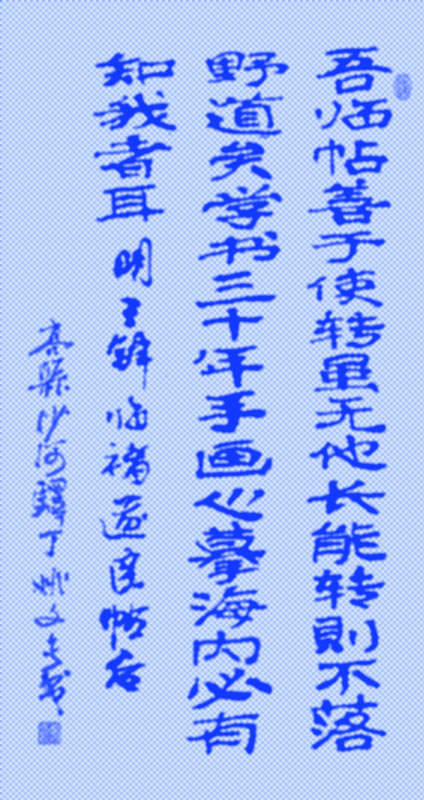 吾临帖善于使转虽无他长能转則不落
野道矣学书三十年手画心摹海内必有
知我者耳 明王铎临褚遂良帖后
沙河驛